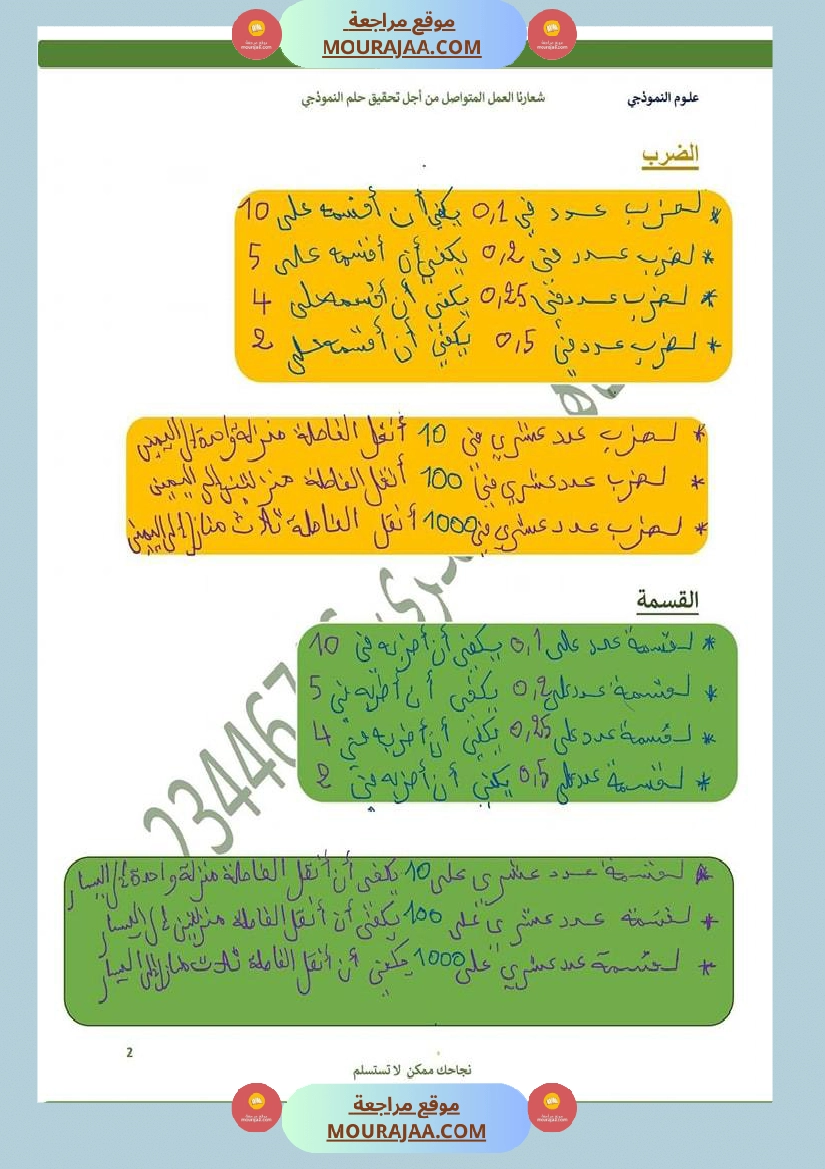 موقع مراجعة
MOURAJAA.COM
علوم النموذجي
شعارنا العمل المتواصل من أجل تحقيق حلم النموذجي
الضرب
* لضرب عدد في 0,1 يكفي أن أقسمه على 10
* لضرب عدد في 0,2 يكفي أن أقسمه على 5
* لضرب عدد في 0,25 يكفي أن أقسمه على 4
* لضرب عدد في 0,5 يكفي أن أقسمه على 2
* لضرب عدد عشري في 10 أنقل الفاصلة منزلة واحدة إلى اليمين
* لضرب عدد عشري في 100 أنقل الفاصلة منزلتين إلى اليمين
* لضرب عدد عشري في 1000 أنقل الفاصلة ثلاث منازل إلى اليمين
القسمة
* لقسمة عدد على 0,1 يكفي أن أضربه في 10
* لقسمة عدد على 0,2 يكفي أن أضربه في 5
* لقسمة عدد على 0,25 يكفي أن أضربه في 4
* لقسمة عدد على 0,5 يكفي أن أضربه في 2
234467
* لقسمة عدد عشري على 10 يكفي أن أنقل الفاصلة منزلة واحدة إلى اليسار
* لقسمة عدد عشري على 100 يكفي أن أنقل الفاصلة منزلتين إلى اليسار
* لقسمة عدد عشري على 1000 يكفي أن أنقل الفاصلة ثلاث منازل إلى اليسار
2
نجاحك ممكن لا تستسلم
موقع مراجعة
MOURAJAA.COM